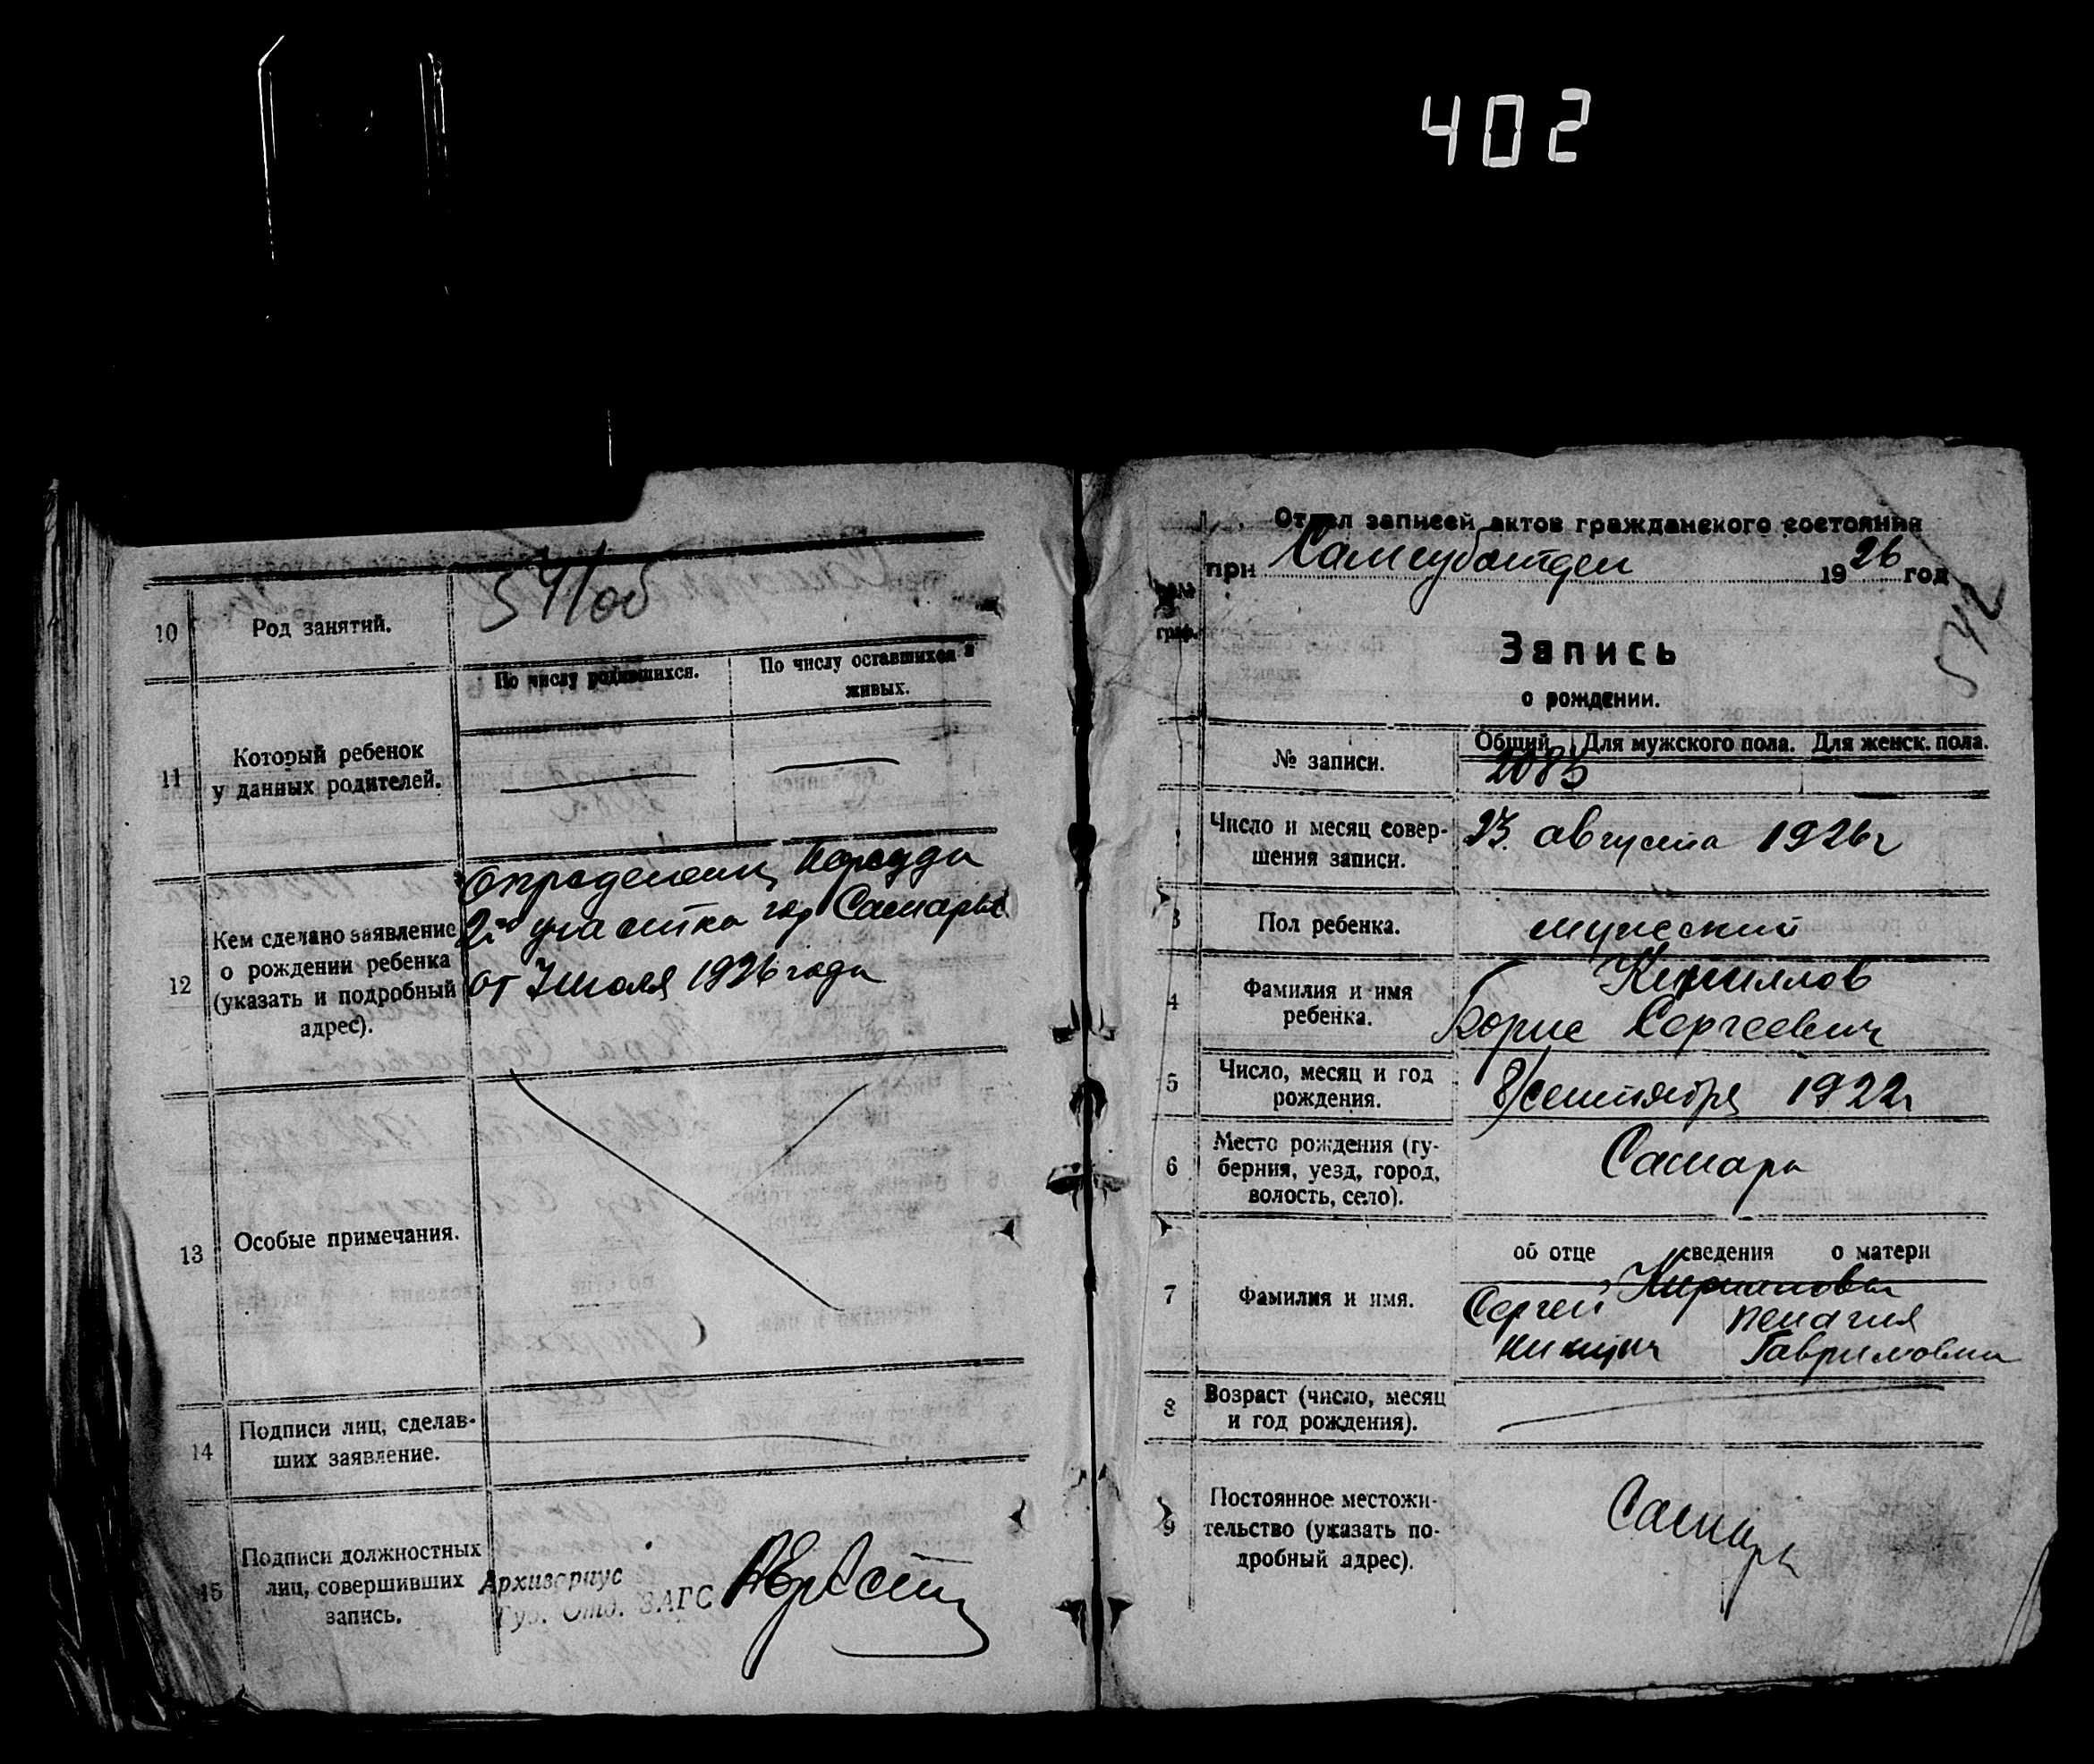 402
541 об
10 Род занятий.
11 Который ребенок
у данных родителей.
По числу родившихся.
По числу оставшихся в
живых.
12 Кем сделано заявление
о рождении ребенка
(указать и подробный
адрес).
Нарсуда
2го участка гор Самары
от 7 июля 1926 года
13 Особые примечания.
14 Подписи лиц, сделав-
ших заявление.
15 Подписи должностных
лиц, совершивших
запись.
Архивариус
Губ. Отд. ЗАГС
Отдел записей актов гражданского состояния
при Самгуботдел 1926 год
542
граф.
Запись
о рождении.
№ записи.
Общий Для мужского пола. Для женск. пола.
2085
Число и месяц совер-
шения записи.
23 августа 1926 г
3 Пол ребенка.
мужской
4 Фамилия и имя
ребенка.
Кириллов
Борис Сергеевич
5 Число, месяц и год
рождения.
8/сентября 1922 г
6 Место рождения (гу-
берния, уезд, город,
волость, село).
Самара
7 Фамилия и имя.
об отце сведения о матери
Сергей
Пелагия
Гавриловна
8 Возраст (число, месяц
и год рождения).
9 Постоянное местожи-
тельство (указать по-
дробный адрес).
Самара